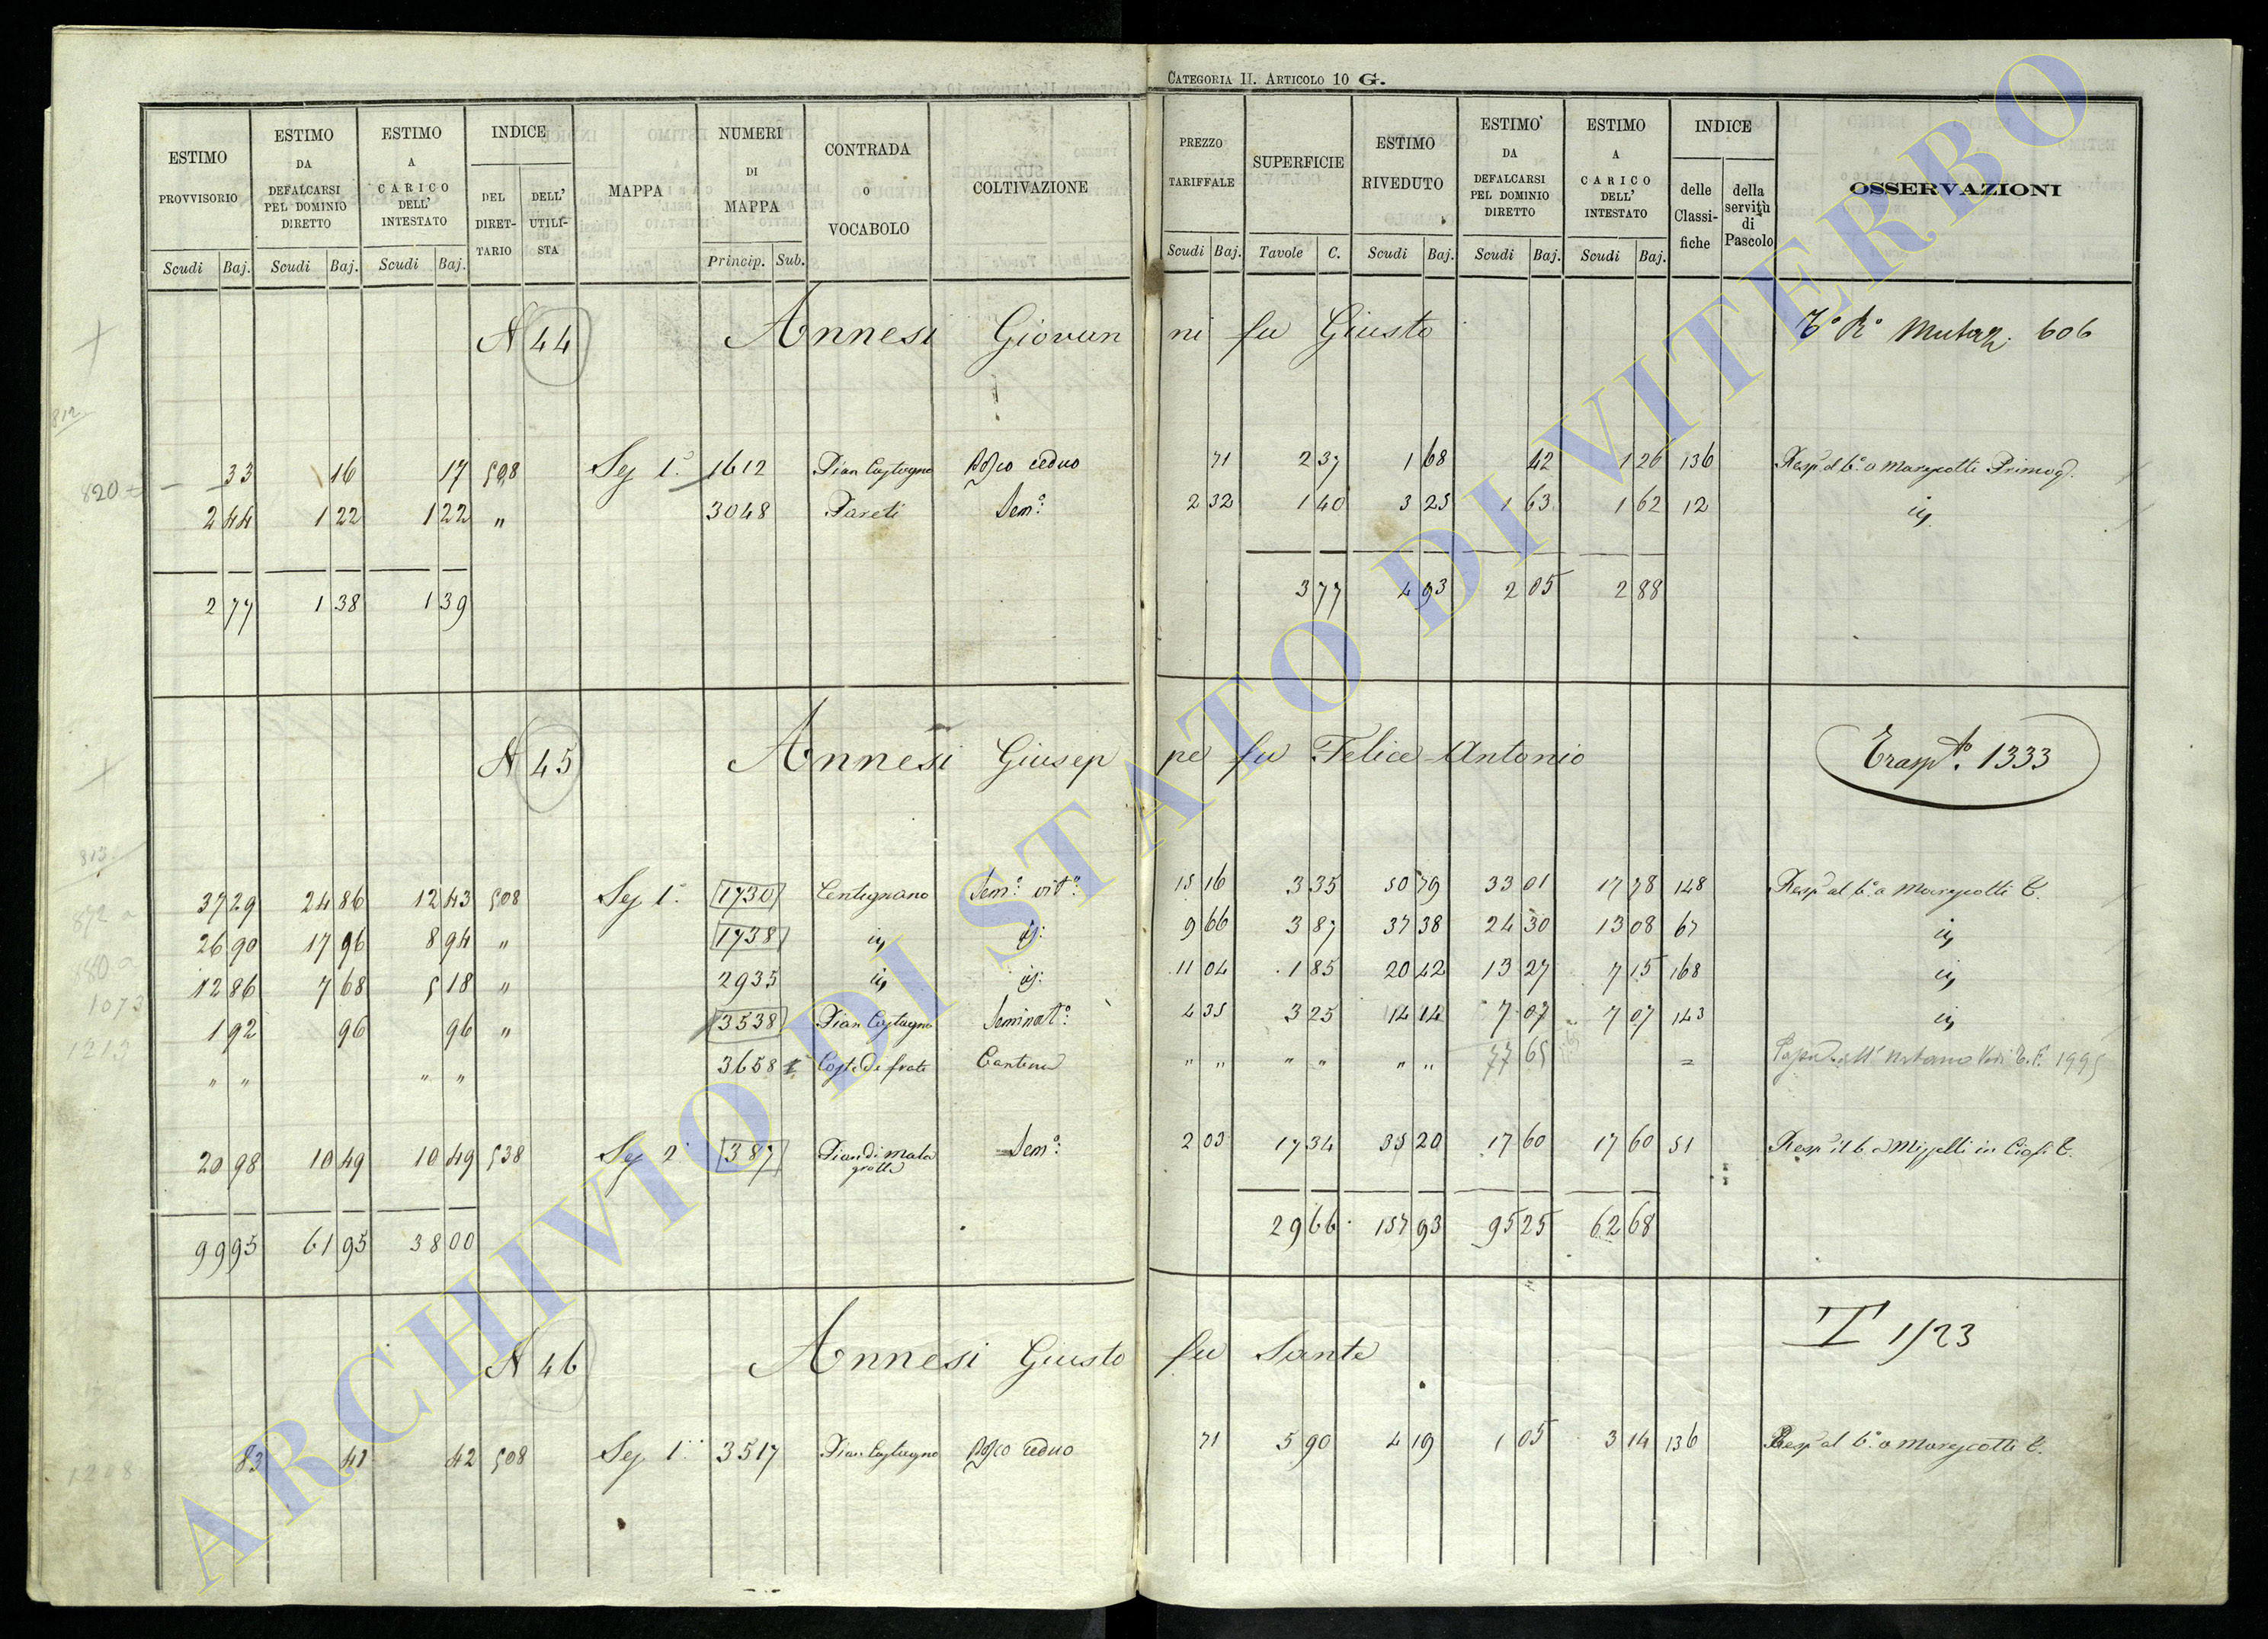 CATEGORIA II. ARTICOLO 10 G.
ESTIMO PROVVISORIO
ESTIMO DA DEFALCARSI PEL DOMINIO DIRETTO
ESTIMO A CARICO DELL' INTESTATO
INDICE
DEL DIRETTARIO
DELL' UTILISTA
MAPPA
NUMERI DI MAPPA
CONTRADA O VOCABOLO
COLTIVAZIONE
PREZZO TARIFFALE
SUPERFICIE
ESTIMO RIVEDUTO
ESTIMO DA DEFALCARSI PEL DOMINIO DIRETTO
ESTIMO A CARICO DELL' INTESTATO
INDICE
delle Classifiche
della servitù di Pascolo
OSSERVAZIONI
Scudi Baj. Scudi Baj. Scudi Baj. Princip. Sub. Scudi Baj. Tavole C. Scudi Baj. Scudi Baj. Scudi Baj.
N 44 Annesi Giovanni fu Giusto 606
812
820
33 16 17 508 Sez 1ª 1612 Pian Castagno Bosco ceduo 71 2 37 1 68 42 1 26 136
2 44 1 22 1 22 " 3048 Pareti Sem.º 2 32 1 40 3 25 1 63 1 62 12
2 77 1 38 1 39 3 77 4 93 2 05 2 88
N 45 Annesi Giuseppe fu Felice Antonio Trasp.to 1333
813
37 29 24 86 12 43 508 Sez 1ª 1730 Centignano Sem.º vit.º 15 16 3 35 50 79 33 01 17 78 148
872
26 90 17 96 8 94 " 1738 9 66 3 87 37 38 24 30 13 08 67
880
12 86 7 68 5 18 " 2935 11 04 1 85 20 42 13 27 7 15 168
1073
1 92 96 96 " 3538 Pian Castagno Seminat.º 4 35 3 25 14 14 7 07 7 07 143
1213
" " " " 3658 Coste de frati Cantina " " " " " " 77 65 = 1995
20 98 10 49 10 49 538 Sez 2ª 387 Pian di mala grotta Sem.º 2 03 17 34 35 20 17 60 17 60 51
99 95 61 95 38 00 29 66 157 93 95 25 62 68
N 46 Annesi Giusto fu Sante T 1723
1208
83 41 42 508 Sez 1ª 3517 Pian Castagno Bosco ceduo 71 5 90 4 19 1 05 3 14 136
ARCHIVIO DI STATO DI VITERBO